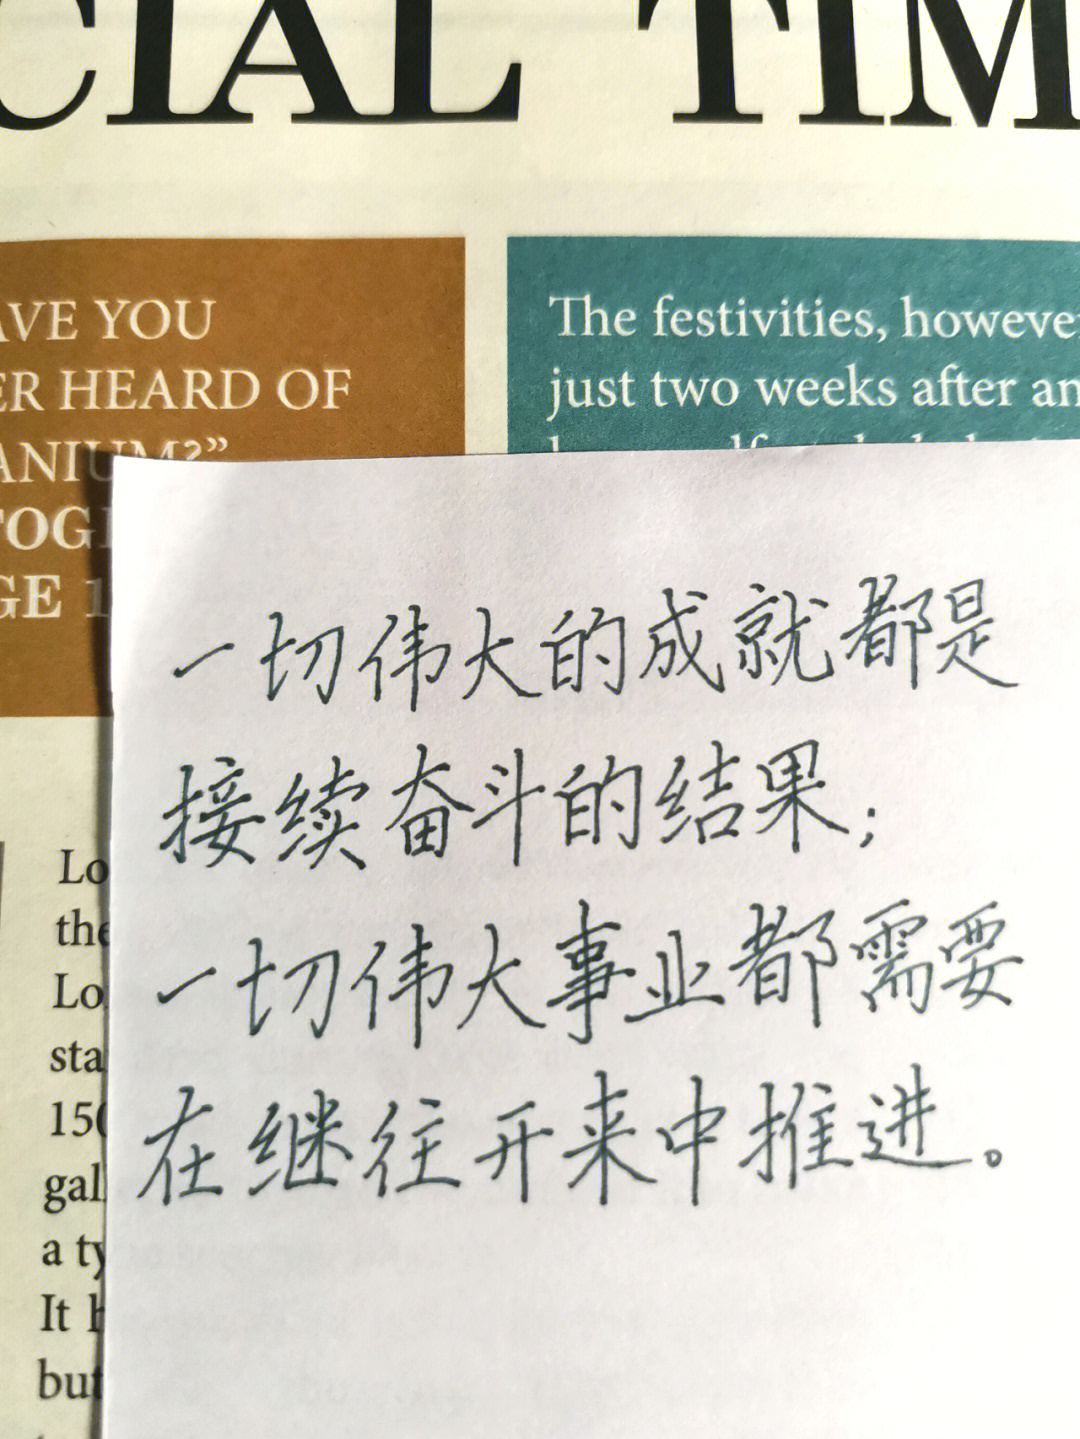 CIAL TIM
AVE YOU
ER HEARD OF
ANIUM?”
TOG
GE 1
The festivities, howeve
just two weeks after an
一切伟大的成就都是
接续奋斗的结果；
一切伟大事业都需要
在继往开来中推进。
Lo
the
Lo
sta
150
gal
a ty
It h
but